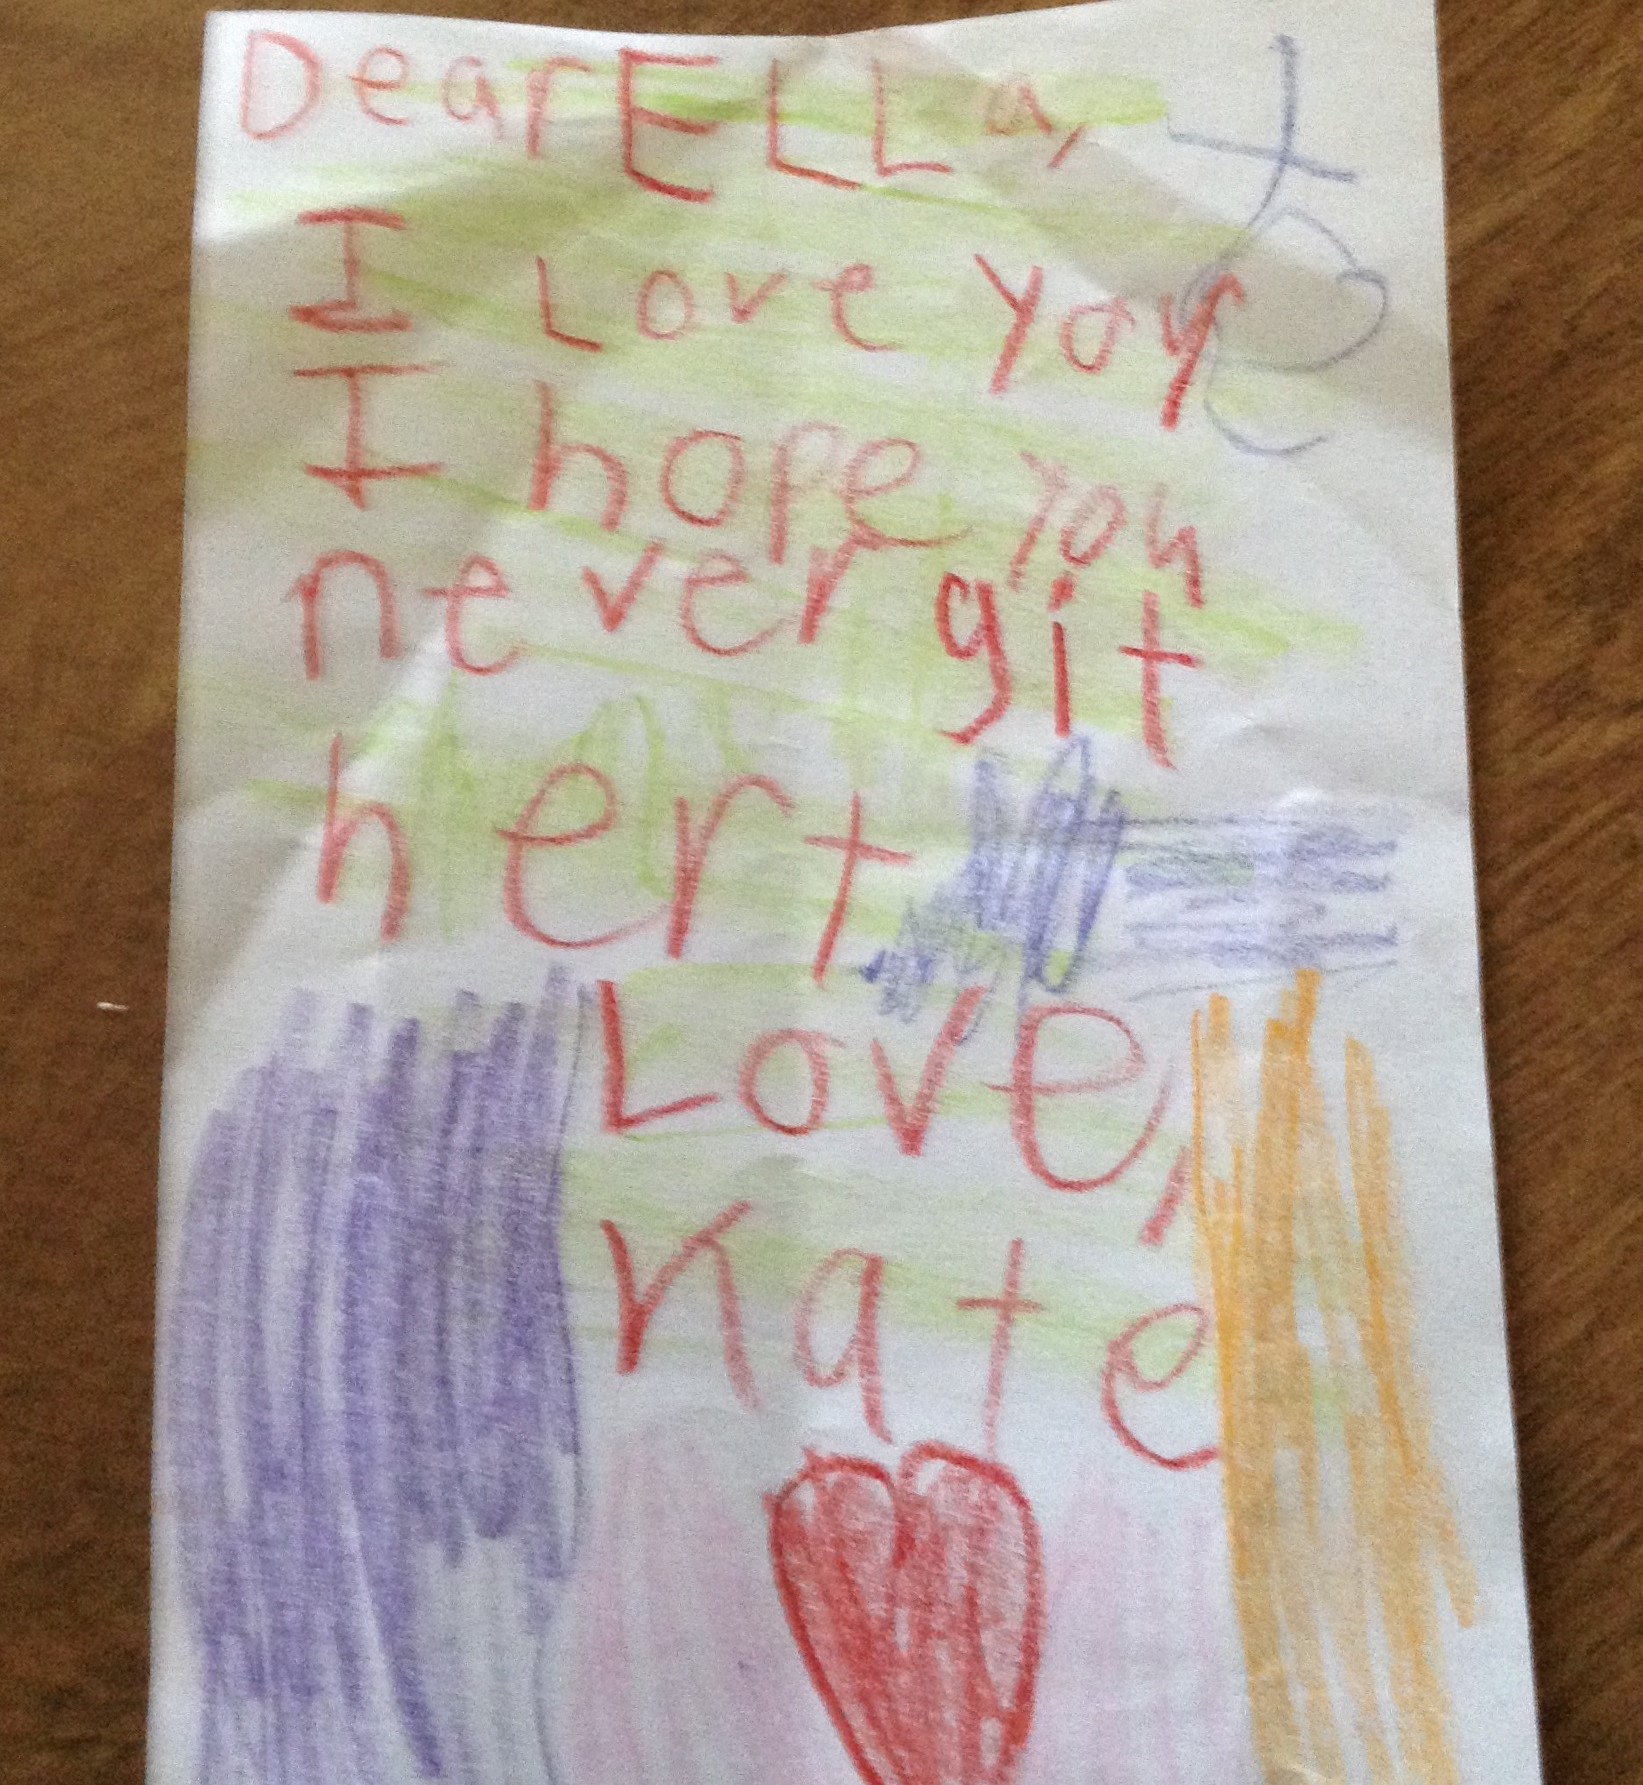 Dear ELLa,
I Love you
I hope you
never git
hert
Love,
Kate